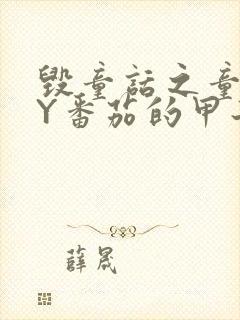 毁童话之童
Y番茄的甲
薛晟